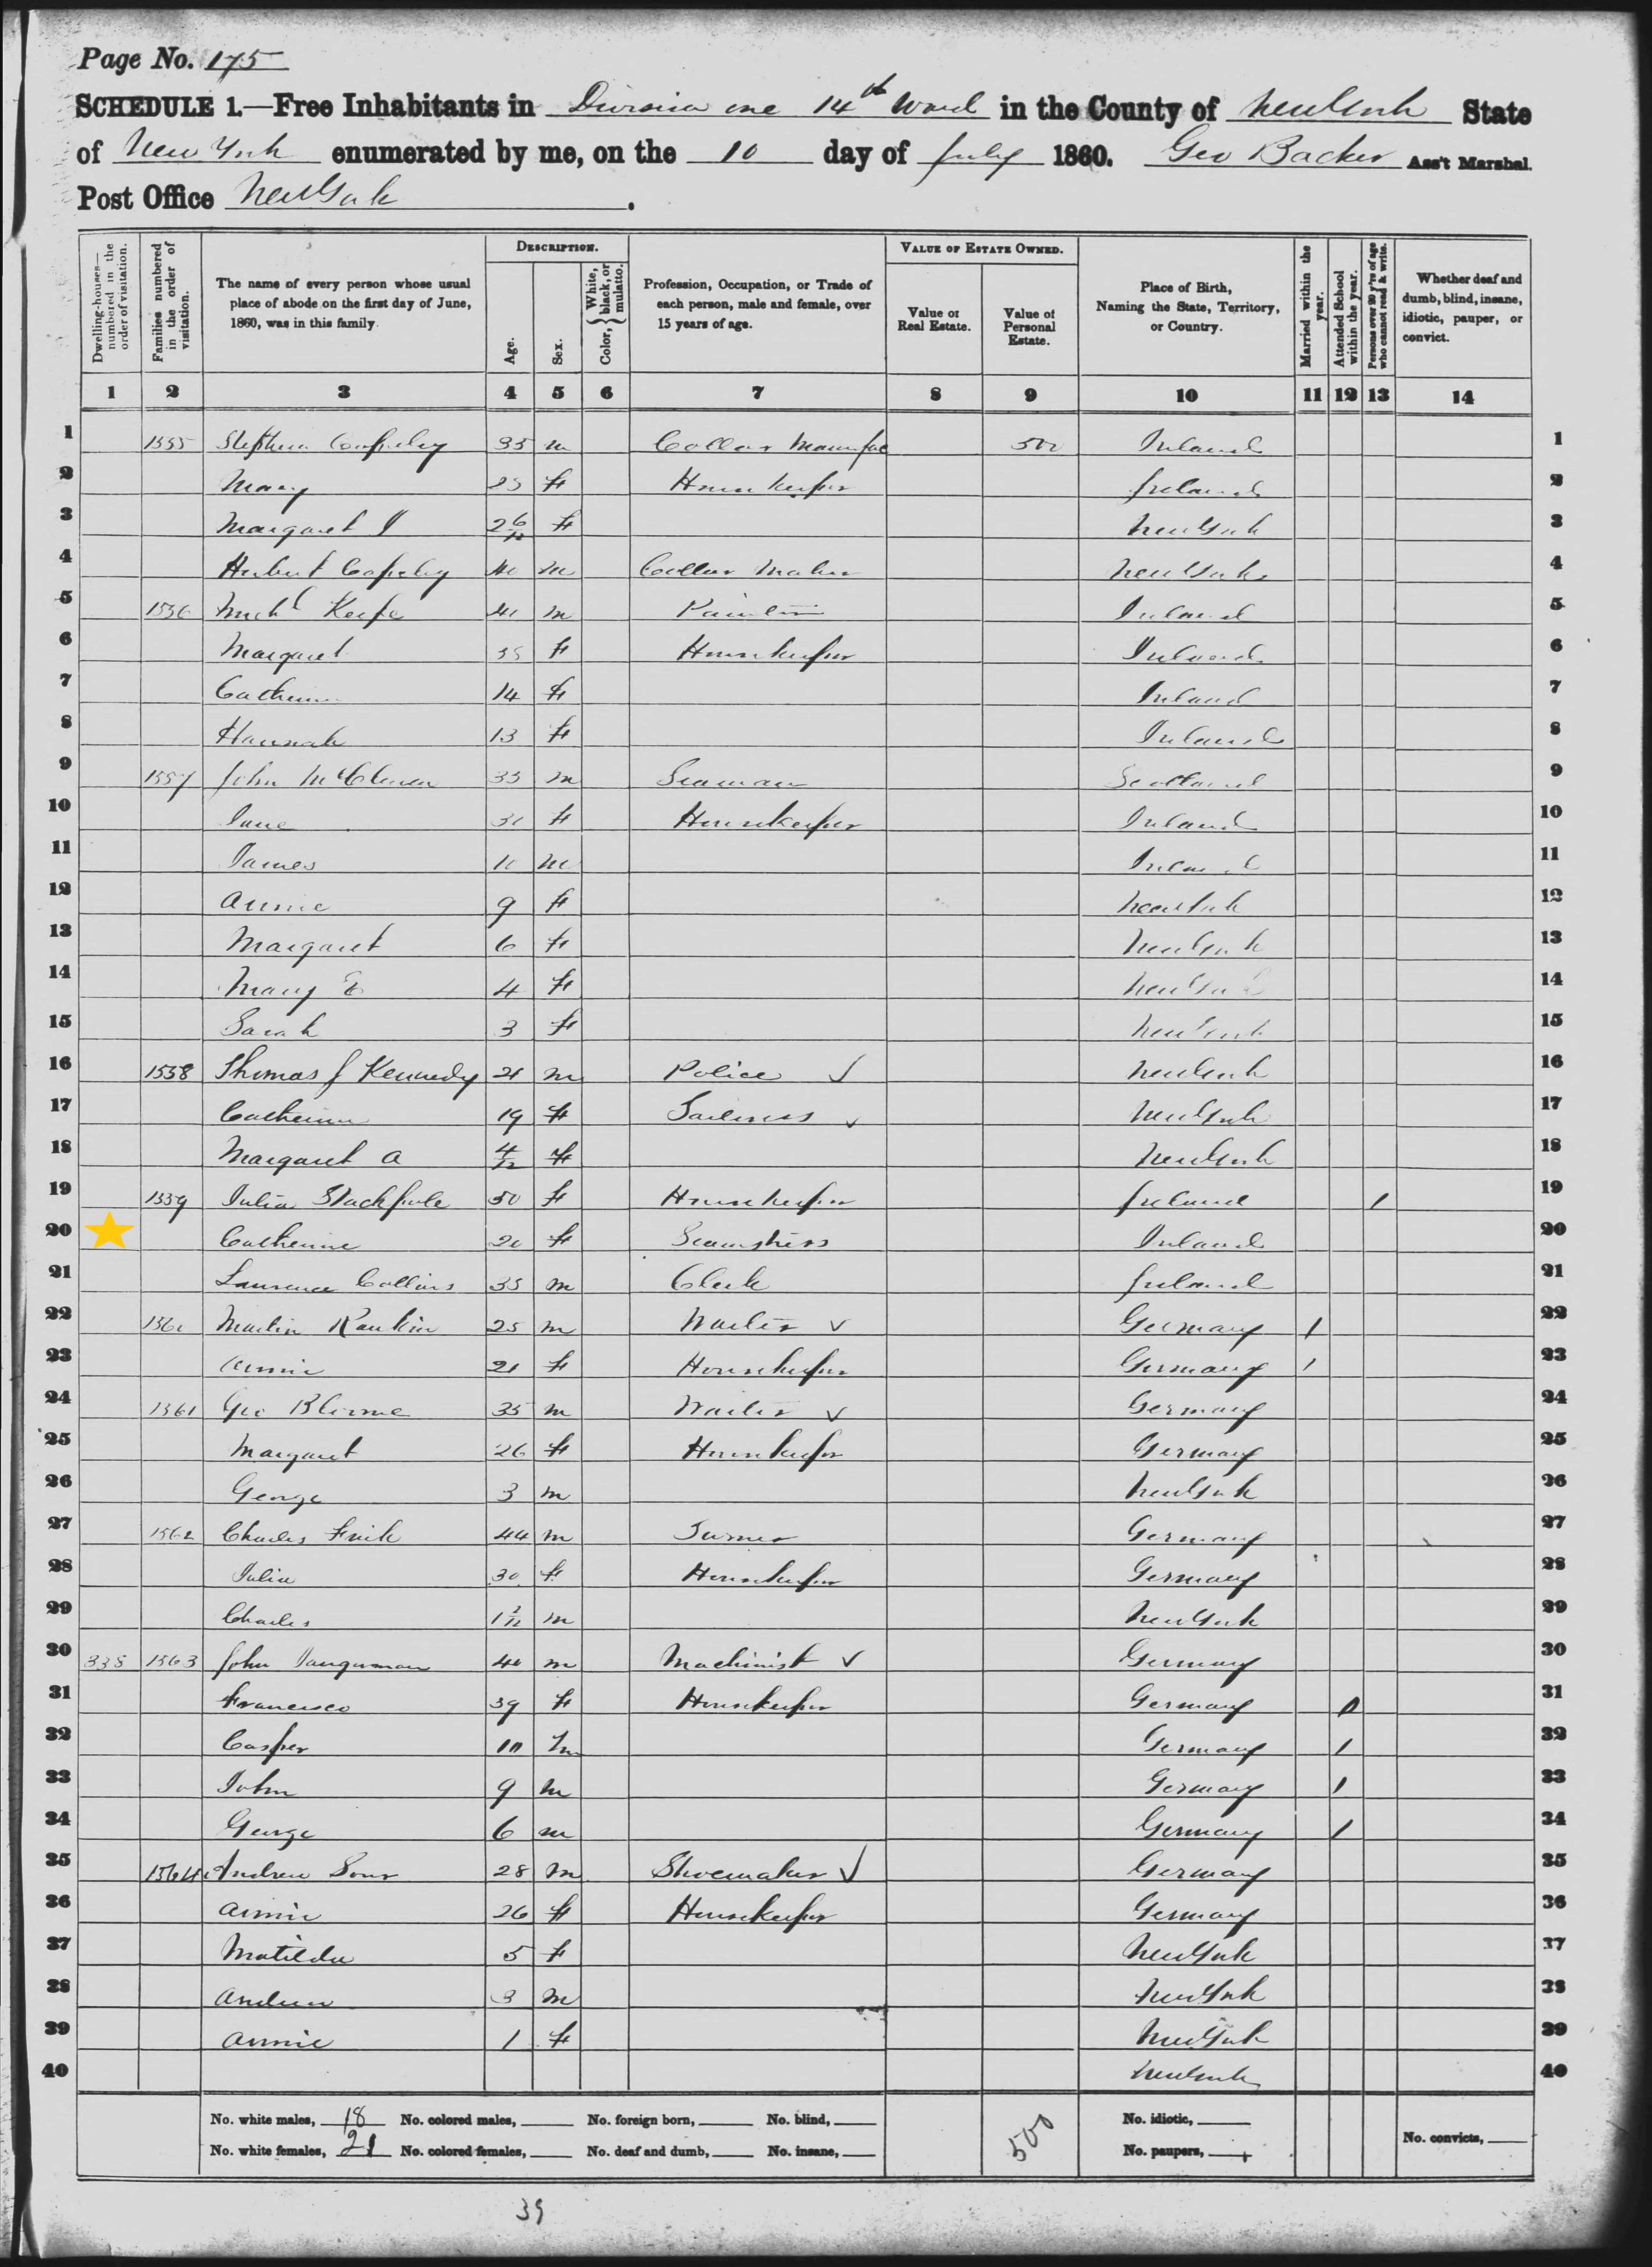 Page No. 175
SCHEDULE 1.—Free Inhabitants in Division one 14th Ward in the County of New York State
of New York enumerated by me, on the 10 day of July 1860. Geo Backer Ass't Marshal.
Post Office New York.
Dwelling-houses—numbered in the order of visitation.
Families numbered in the order of visitation.
The name of every person whose usual place of abode on the first day of June, 1860, was in this family.
DESCRIPTION.
Age.
Sex.
Color, White, black, or mulatto.
Profession, Occupation, or Trade of each person, male and female, over 15 years of age.
VALUE OF ESTATE OWNED.
Value of Real Estate.
Value of Personal Estate.
Place of Birth, Naming the State, Territory, or Country.
Married within the year.
Attended School within the year.
Persons over 20 y'rs of age who cannot read & write.
Whether deaf and dumb, blind, insane, idiotic, pauper, or convict.
1 2 3 4 5 6 7 8 9 10 11 12 13 14
1 1555 Stephen 35 m Collar Manufac 500 Ireland 1
2 Mary 25 f Housekeeper Ireland 2
3 Margaret 2 6/12 f New York 3
4 m Collar Maker New York 4
5 1556 Mich'l Keefe m Ireland 5
6 Margaret 35 f Housekeeper Ireland 6
7 Catherine 14 f Ireland 7
8 Hannah 13 f Ireland 8
9 1557 John 35 m Seaman Scotland 9
10 Jane f Housekeeper Ireland 10
11 James m Ireland 11
12 Annie 9 f New York 12
13 Margaret 6 f New York 13
14 Mary E 4 f New York 14
15 Sarah 3 f New York 15
16 1558 Thomas J Kennedy 21 m Police ✓ New York 16
17 Catherine 19 f Tailoress ✓ New York 17
18 Margaret A 4/12 f New York 18
19 1559 Julia Stackpole 50 f Housekeeper Ireland / 19
20 Catherine 20 f Seamstress Ireland 20
21 Laurence Collins 35 m Clerk Ireland 21
22 1560 Martin Rankin 25 m Waiter ✓ Germany / 22
23 Annie 21 f Housekeeper Germany / 23
24 1561 Geo 35 m Waiter ✓ Germany 24
25 Margaret 26 f Housekeeper Germany 25
26 George 3 m New York 26
27 1562 Charles Frick 44 m Turner Germany 27
28 Julia 30 f Housekeeper Germany 28
29 Charles 1 m New York 29
30 335 1563 John 40 m Machinist ✓ Germany 30
31 Francisco 39 f Housekeeper Germany 31
32 Casper m Germany / 32
33 John 9 m Germany / 33
34 George 6 m Germany / 34
35 1564 Andrew 28 m Shoemaker ✓ Germany 35
36 Annie 26 f Housekeeper Germany 36
37 Matilda 5 f New York 37
38 Andrew 3 m New York 38
39 Annie 1 f New York 39
40 New York 40
No. white males, 18 No. colored males, No. foreign born, No. blind, No. idiotic,
No. white females, 21 No. colored females, No. deaf and dumb, No. insane, 500 No. paupers, No. convicts,
39